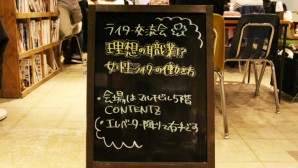 ライター交流会
理想の職業!?
女性ライターの働き方
会場はマルモビル5階
CONTENTZ
・エレベーター降りて右手です